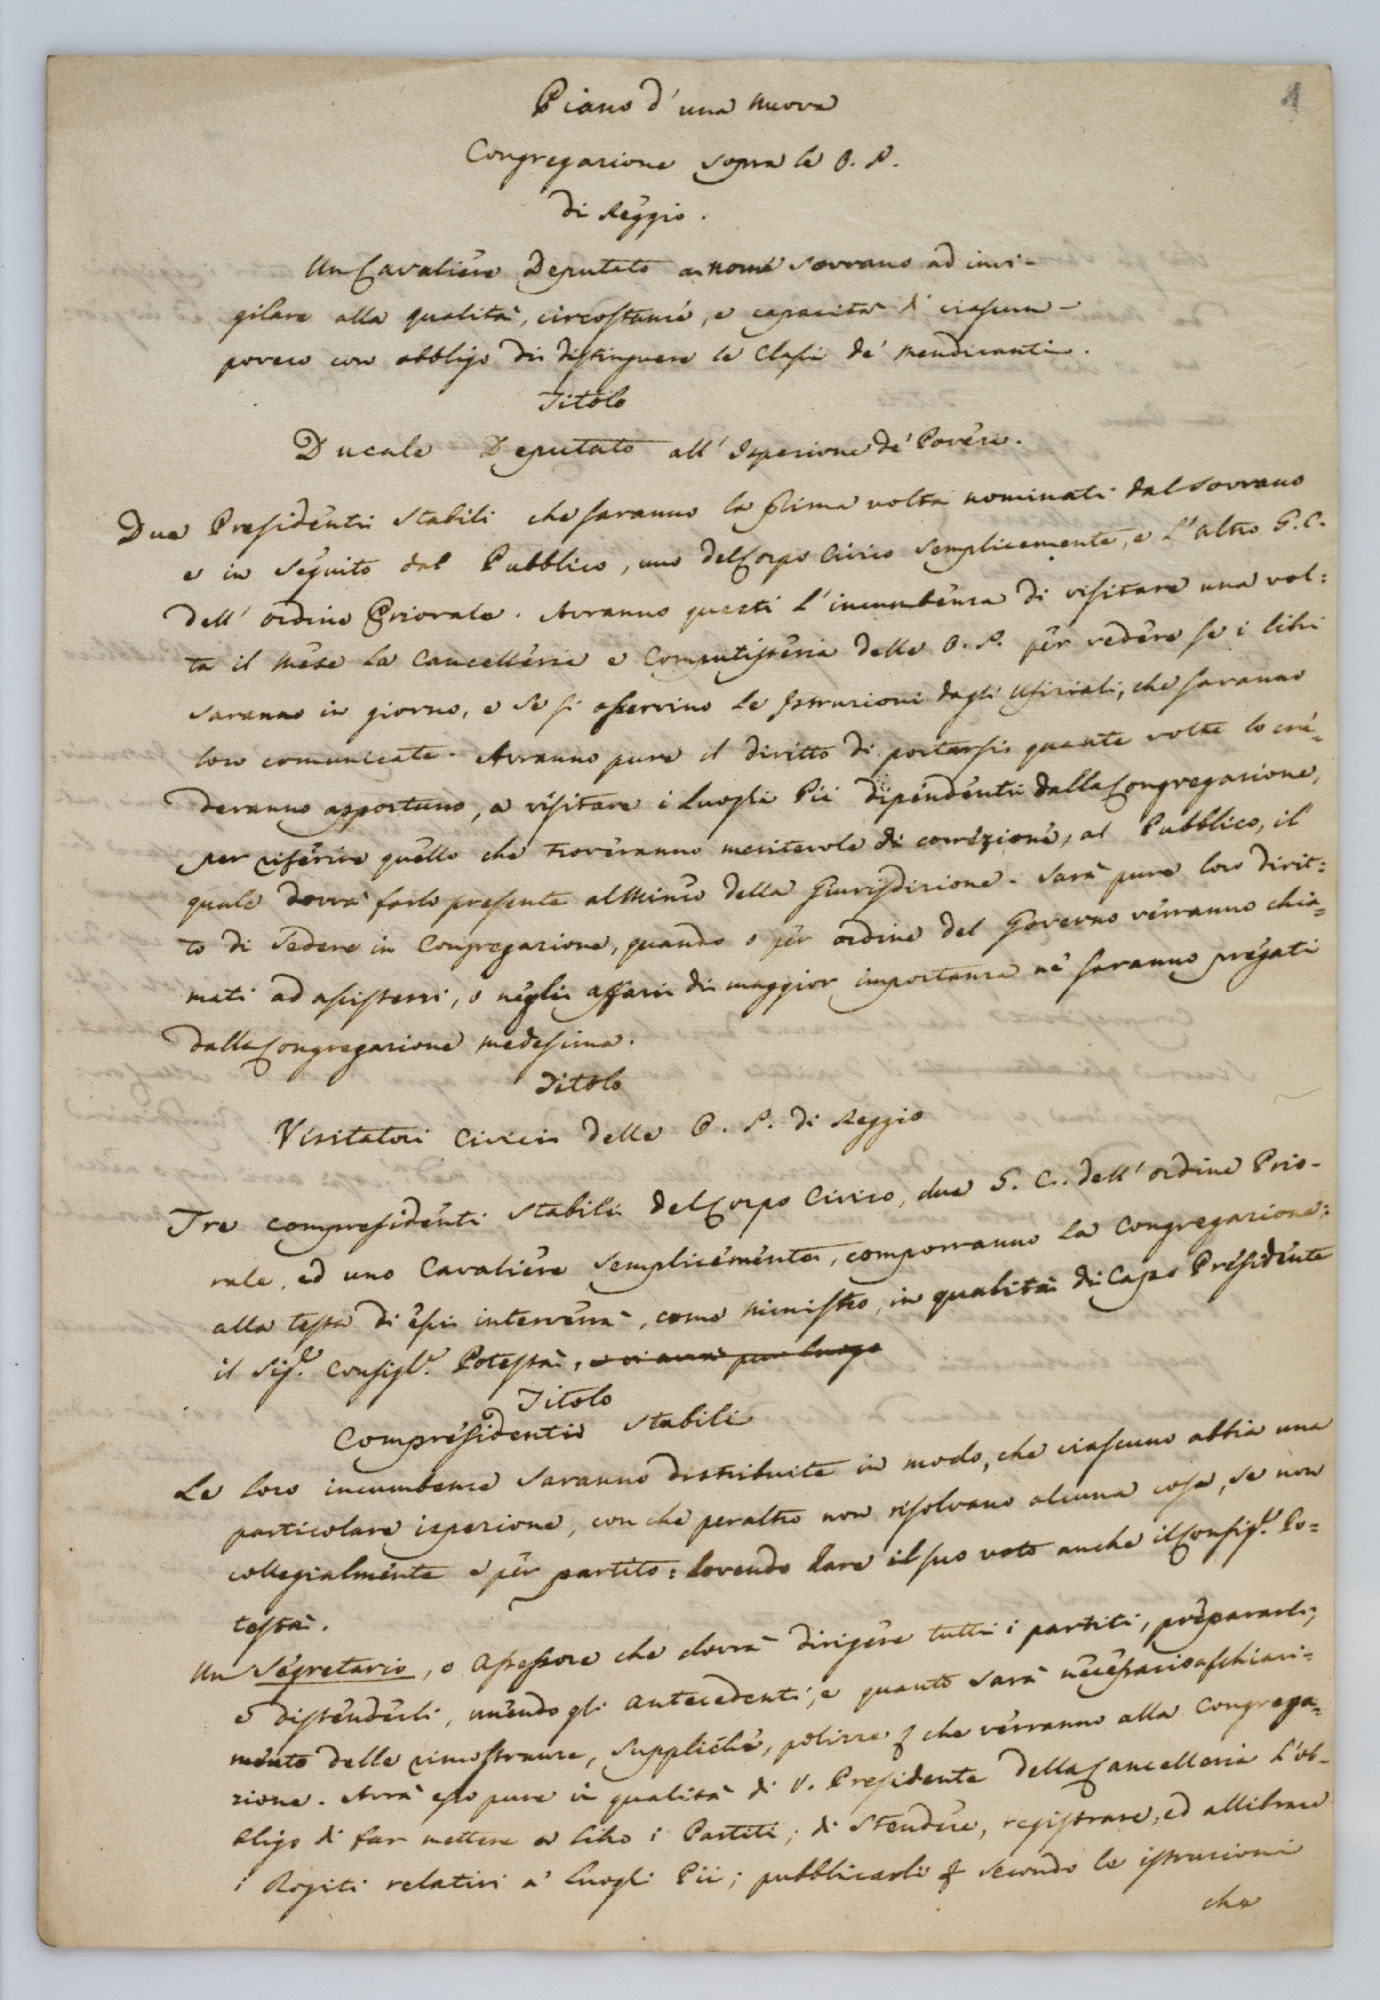 1
Piano d'una nuova
Congregazione sopra le O. P.
di Reggio.
Un Cavaliere Deputato a nome Sovrano ad invi-
gilare alla qualità, circostanze, e capacità di ciascun
povero con obbligo di distinguere le Classi de' mendicanti.
Titolo
Ducale Deputato all' Ispezione de' Poveri.
Due Presidenti Stabili che saranno la prima volta nominati dal Sovrano
e in seguito dal Pubblico, uno del Corpo Civico semplicemente, e l'altro G. C.
dell' ordine Priorale. Avranno questi l'incumbenza di visitare una vol:
ta il mese la Cancelleria e Computisteria delle O. P. per vedere se i libri
saranno in giorno, e se si osservino le Istruzioni dagli Usiziali, che saranno
loro comunicate. Avranno pure il diritto di portarsi quante volte lo cre=
deranno opportuno, a visitare i Luoghi Pii dipendenti dalla Congregazione,
per riferire quello che troveranno meritevole di correzione, al Pubblico, il
quale dovrà farlo presente al Minro della Giurisdizione. Sarà pure loro dirit:
to di sedere in Congregazione, quando o per ordine del Governo verranno chia=
mati ad assistervi, o negli affari di maggior importanza ne saranno pregati
dalla Congregazione medesima.
Titolo
Visitatori Civici delle O. P. di Reggio
Tre compresidenti stabili del Corpo Civico, due G. C. dell' ordine Prio-
rale, ed uno Cavaliere semplicemente, comporranno la Congregazione;
alla testa di essi interverrà, come ministro, in qualità di Capo Presidente
il Sigr. Consiglr. Potestà, e vi avrà pur luogo
Titolo
Compresidenti stabili
Le loro incumbenze saranno distribuite in modo, che ciascuno abbia una
particolare ispezione, con che peraltro non risolvano alcuna cosa, se non
collegialmente e per partito: dovendo dare il suo voto anche il Consigr. Po=
testà.
Un Segretario, o Assessore che dovrà dirigere tutti i partiti, prepararli,
e distenderli, unendo gli antecedenti, e quanto sarà necessario a schiari=
mento delle rimostranze, suppliche, polizze & che verranno alla Congrega=
zione. Avrà esso pure in qualità di V. Presidente della Cancelleria l'ob-
bligo di far mettere a libro i Partiti; di stendere, registrare, ed allibrare
i Rogiti relativi a' Luoghi Pii; pubblicarli & secondo le istruzioni
che